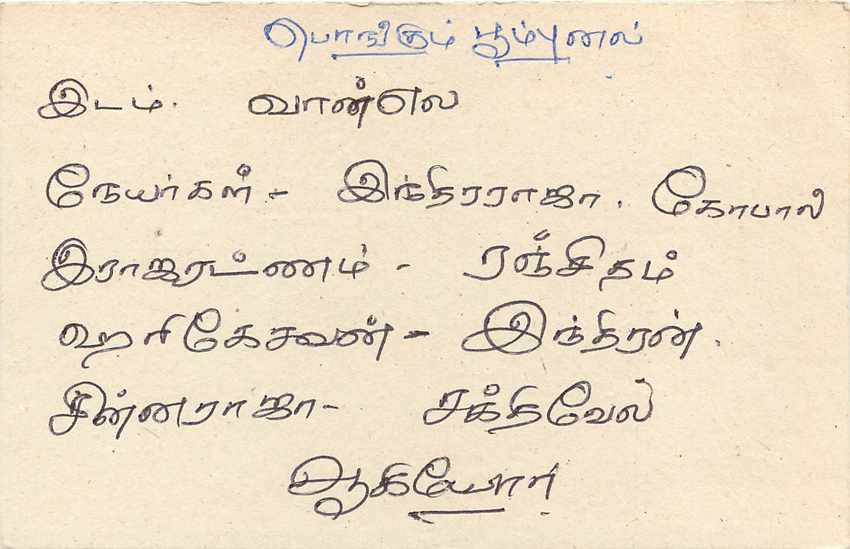 பொங்கும் பூம்புனல்
இடம். வான்எல
நேயர்கள் - இந்திரராஜா. கோபால்
இராஜரட்ணம் - ரஞ்சிதம்
ஹரிகேசவன் - இந்திரன்.
சின்னராஜா - சக்திவேல்
ஆகியோர்